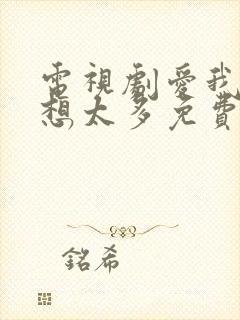 電視劇愛我
想太多免費
銘希